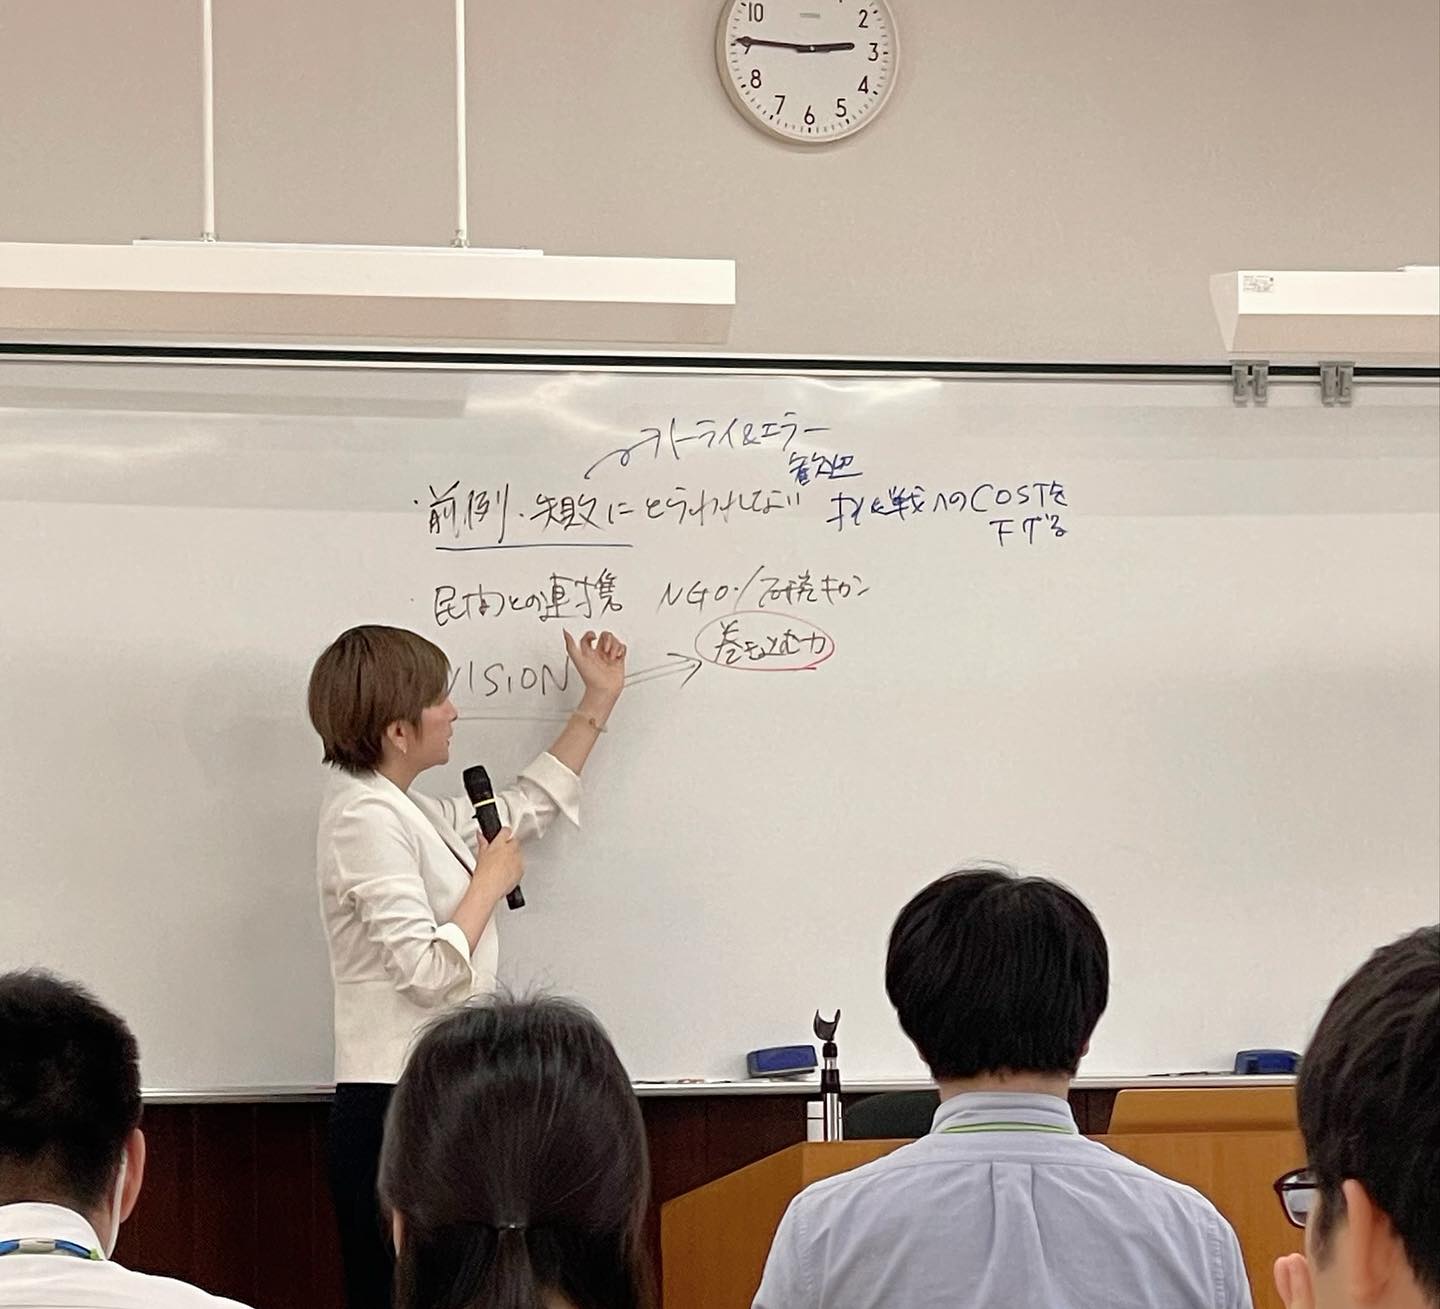 10 2
9 3
8 4
7 6 5
トライ&エラー
歓迎
・前例・失敗にとらわれない 挑戦へのCOSTを
下げる
・民間との連携 NGO/研究キカン
巻き込む力
VISION